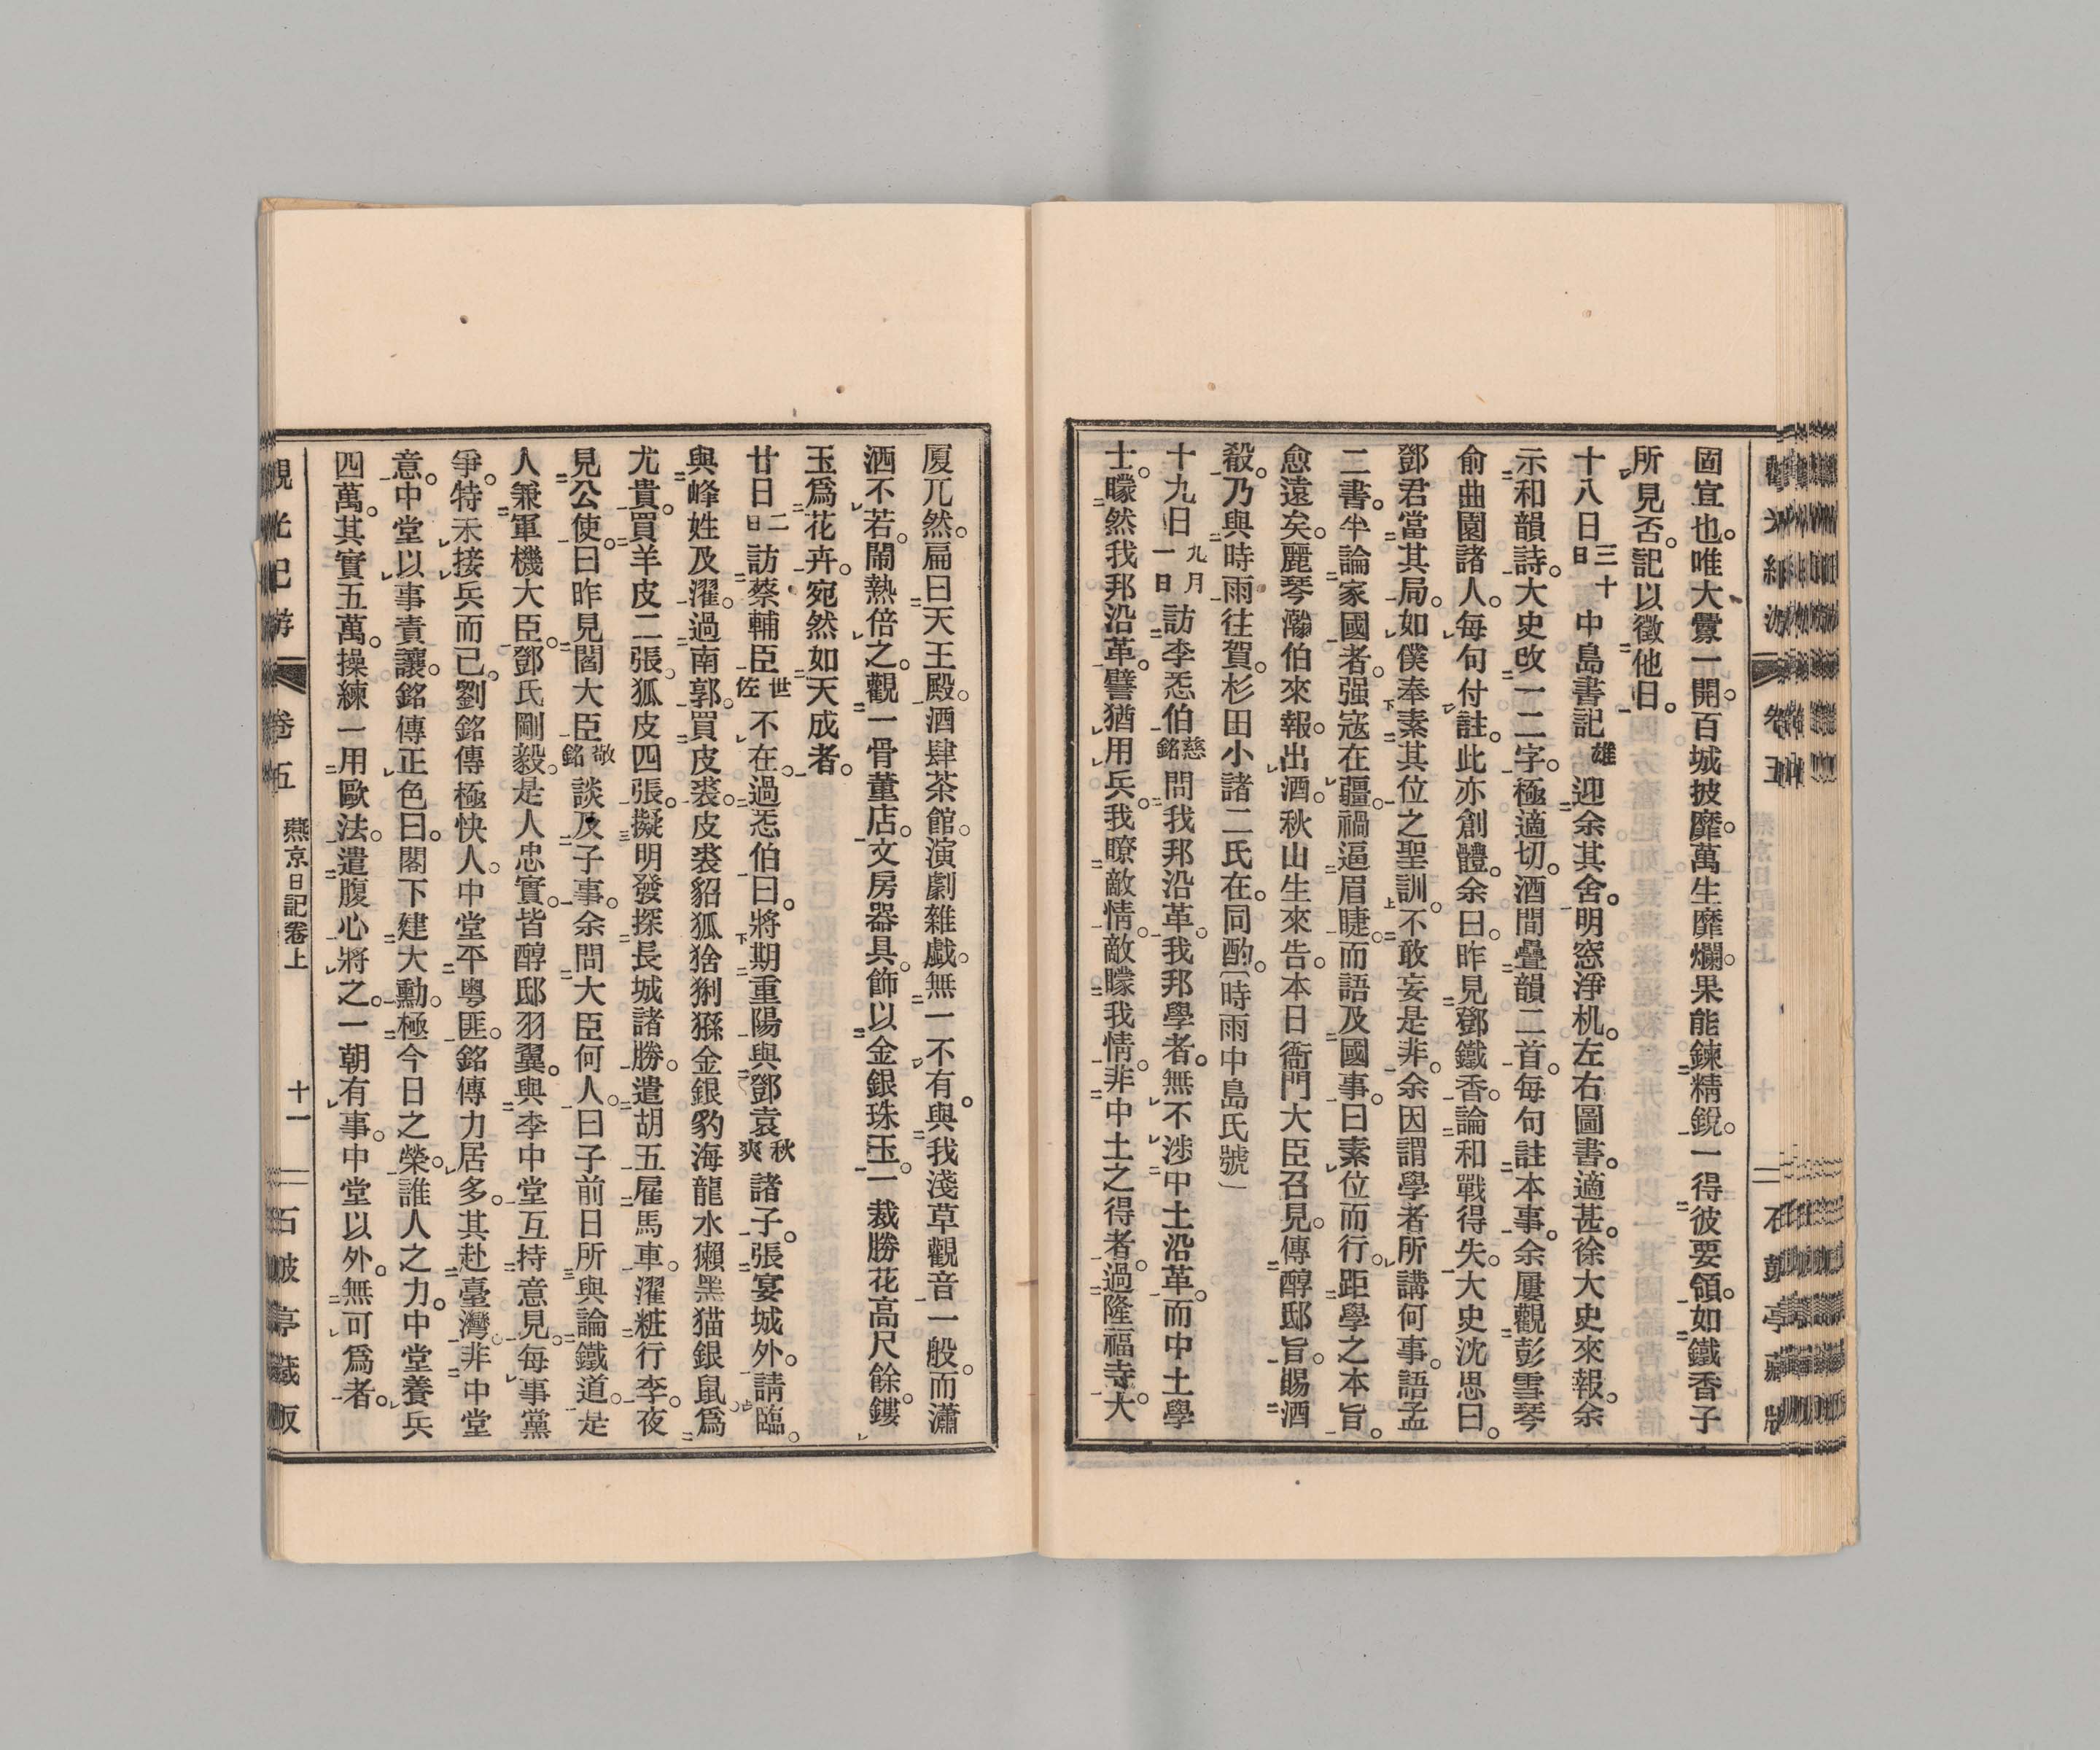 固宜也。唯大釁一開。百城披靡。萬生靡爛。果能鍊精銳。一得彼要領。如鐵香子
所見否。記以徵他日。
十八日三十日中島書記雄迎余其舍。明窓淨机。左右圖書。適甚。徐大史來報。余
示和韻詩。大史改一二字。極適切。酒間疊韻二首。每句註本事。余屢觀彭雪琴
俞曲園諸人。每句付註。此亦創體。余曰。昨見鄧鐵香。論和戰得失。大史沈思曰。
鄧君當其局。如僕奉素其位之聖訓。不敢妄是非。余因謂學者所講何事。語孟
二書。半論家國者。强寇在疆。禍逼眉睫。而語及國事。曰素位而行。距學之本旨。
愈遠矣。麗琴瀚伯來報。出酒。秋山生來告。本日衙門大臣召見。傳醇邸旨。賜酒
殽。乃與時雨往賀。杉田小諸二氏在。同酌。(時雨中島氏號)
十九日九月一日訪李悉伯慈銘問我邦沿革。我邦學者。無不涉中土沿革。而中土學
士。矇然我邦沿革。譬猶用兵。我瞭敵情。敵矇我情。非中土之得者。過隆福寺。大
厦兀然。扁曰天王殿。酒肆茶館。演劇雜戲。無一不有。與我淺草觀音一般。而瀟
洒不若。鬧熱倍之。觀一骨董店。文房器具。飾以金銀珠玉。一裁勝花高尺餘。鏤
玉爲花卉。宛然如天成者。
廿日二日訪蔡輔臣世佐不在。過悉伯曰。將期重陽與鄧袁秋爽諸子。張宴城外。請臨。
與峰姓及濯。過南郭。買皮裘。皮裘貂狐猞猁猻金銀豹海龍水獺黑猫銀鼠。爲
尤貴。買羊皮二張。狐皮四張。擬明發探長城諸勝。遣胡五雇馬車。濯粧行李。夜
見公使。曰昨見閻大臣敬銘談及子事。余問大臣何人。曰子前日所與論鐵道。是
人兼軍機大臣。鄧氏剛毅。是人忠實。皆醇邸羽翼。與李中堂互持意見。每事黨
爭。特未接兵而已。劉銘傳極快人。中堂平粤匪。銘傳力居多。其赴臺灣。非中堂
意。中堂以事責讓。銘傳正色曰。閣下建大勳。極今日之榮。誰人之力。中堂養兵
四萬。其實五萬。操練一用歐法。遣腹心將之。一朝有事。中堂以外。無可爲者。
觀光紀游 卷五 燕京日記卷上 十一 石皷亭藏版